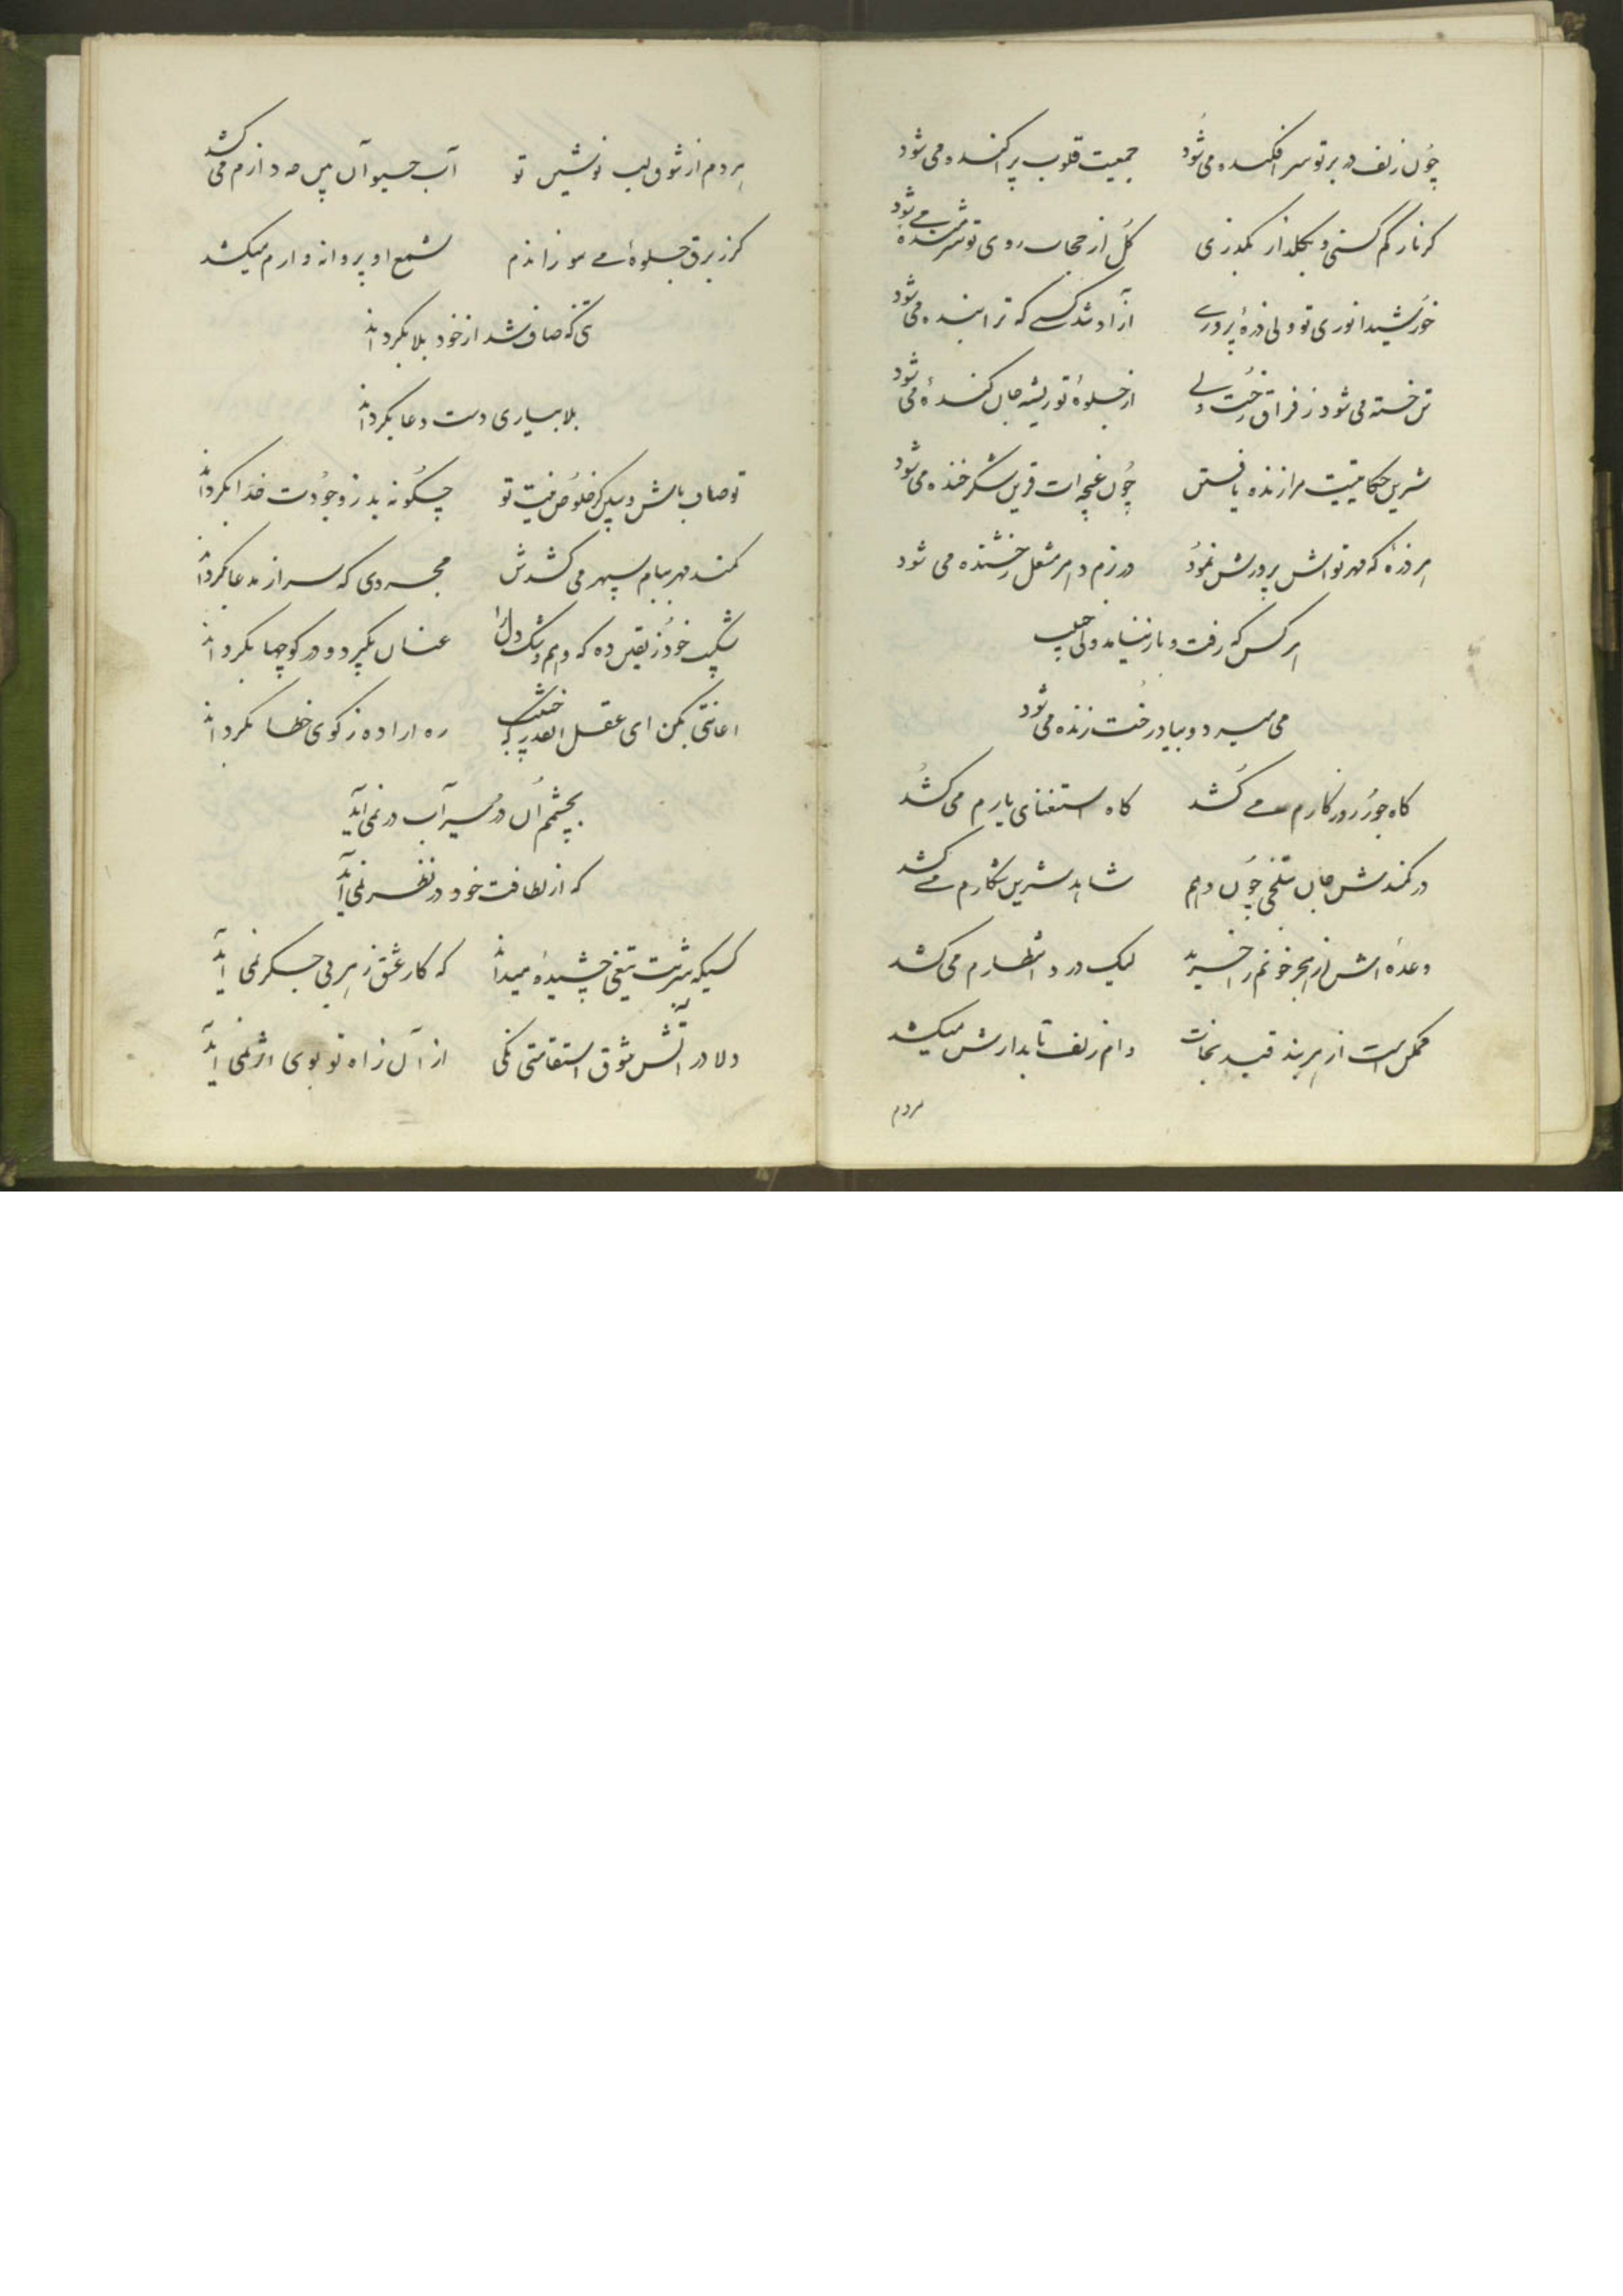 چون زلف در بر تو سر افکنده می شود جمعیت قلوب پراکنده می شود
گر ناز کم کنی و بگلذار بگذری گل از حجاب روی تو شرمنده می شود
خورشید انوری تو ولی ذرهٔ پروری آزاد شد کسی که ترا بنده می شود
تن خسته می شود ز فراق رخت ولی از جلوهٔ تو ریشه جان کنده می شود
شیرین حکایتیت مرا زنده یافتن چون غنچه ات قرین شکر خنده می شود
هر ذرهٔ که مهر تواش پرورش نمود در بزم دهر مشعل رخشنده می شود
هر کس که رفت و باز نیامد ولی
می میرد و بیاد رخت زنده می شود
گاه جور روزگارم می کُشد گاه استغنای یارم می کُشد
در کمندش جان بتلخی چون دهم شاهد شیرین شکارم می کشد
وعده اش از هجر خونم را خرید لیک درد انتظارم می کشد
ممکن است از هر بند قید نجات دام زلف تابدارش میکشد
هردم
هردم از شوق لب نوشین تو آب حیوان پس دارم می کشد
کز برق جلوهٔ می سوزاندم شمع او پروانه وارم میکشد
کی که صاف شد از خود بلا بگرداند
بلا بیاری دست دعا بگرداند
تو صاف باش و ببین کز خلوص نیت تو چگونه بد ز وجودت خدا بگرداند
کمند مهر ببام سپهر می کشدش مجردی که سر از مدعا بگرداند
شکیب خود ز یقین ده که وهم و شک دل را عنان بگیرد و در کوچها بگرداند
اعانتی بکن ای عقل ره اراده ز کوی خطا بگرداند
بچشمم آن در سیراب در نمی آید
که از لطافت خود در نظر نمی آید
کسیکه شربت تیغی چشیده میداند که کار عشق ز هر بی جگر نمی آید
دلا در آتش شوق استقامتی نکنی از آن ز آه تو بوی اثر نمی آید